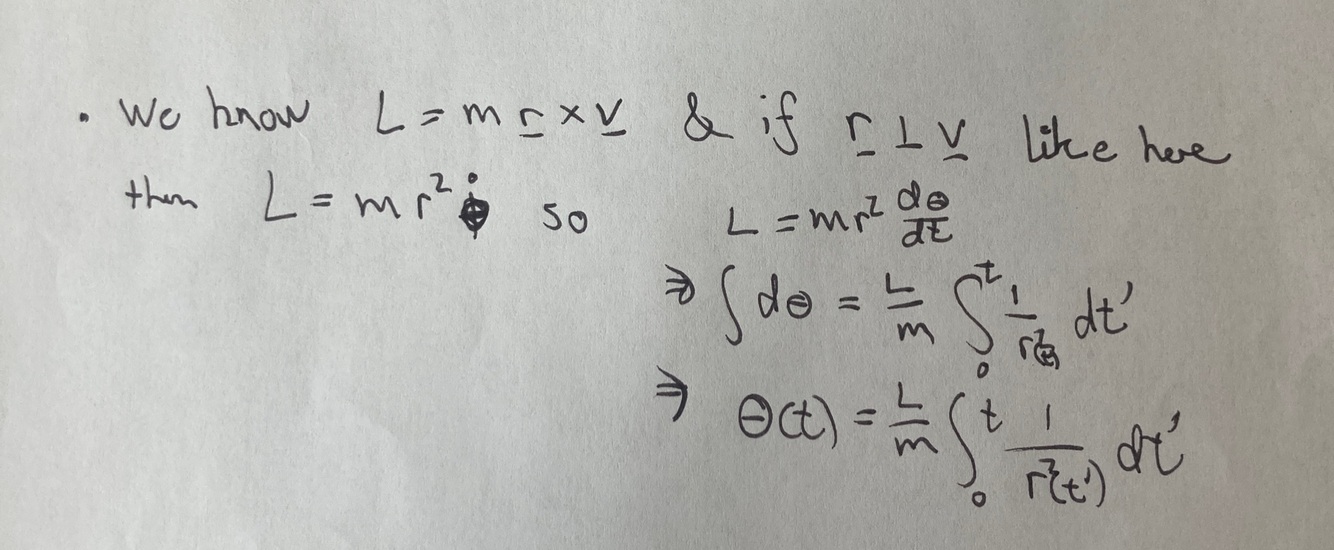 · We know L = m r × v & if r ⊥ v like here
then L = m r² θ̇ so L = mr² dθ/dt
⇒ ∫ dθ = L/m ∫₀ᵗ 1/r²(t') dt'
⇒ θ(t) = L/m ∫₀ᵗ 1/r²(t') dt'